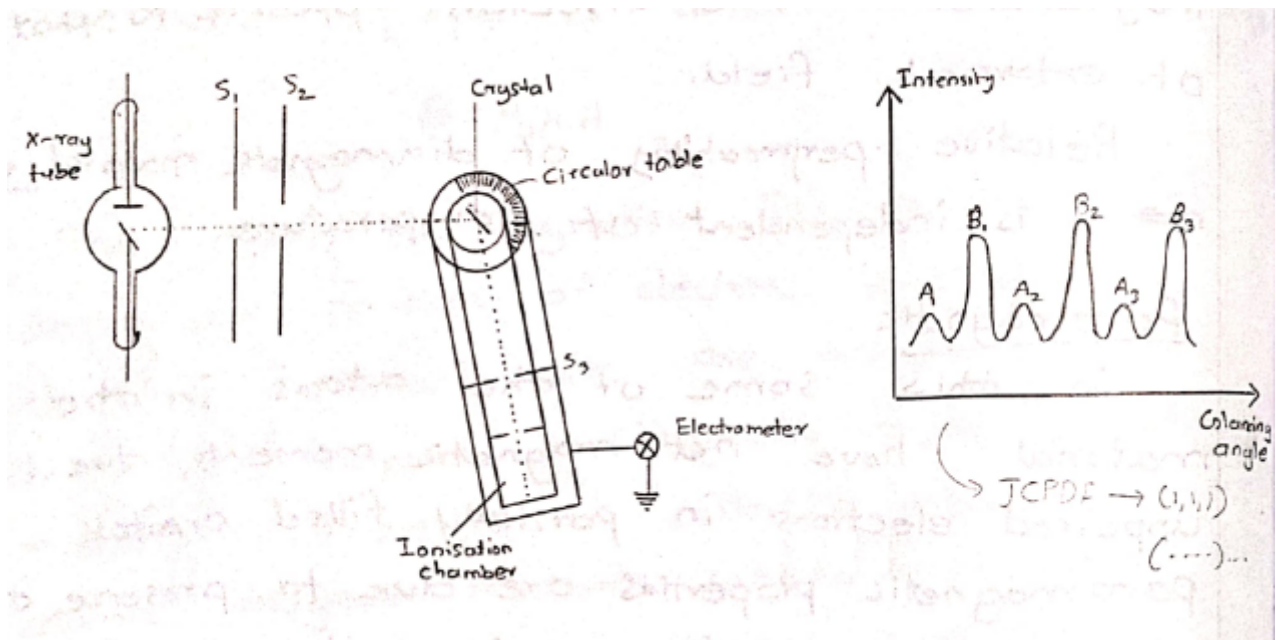 X-ray
tube
S₁
S₂
Crystal
Circular table
S₃
Electrometer
Ionisation
chamber
Intensity
A
B₁
A₂
B₂
A₃
B₃
angle
(1,1,1)
(....)...